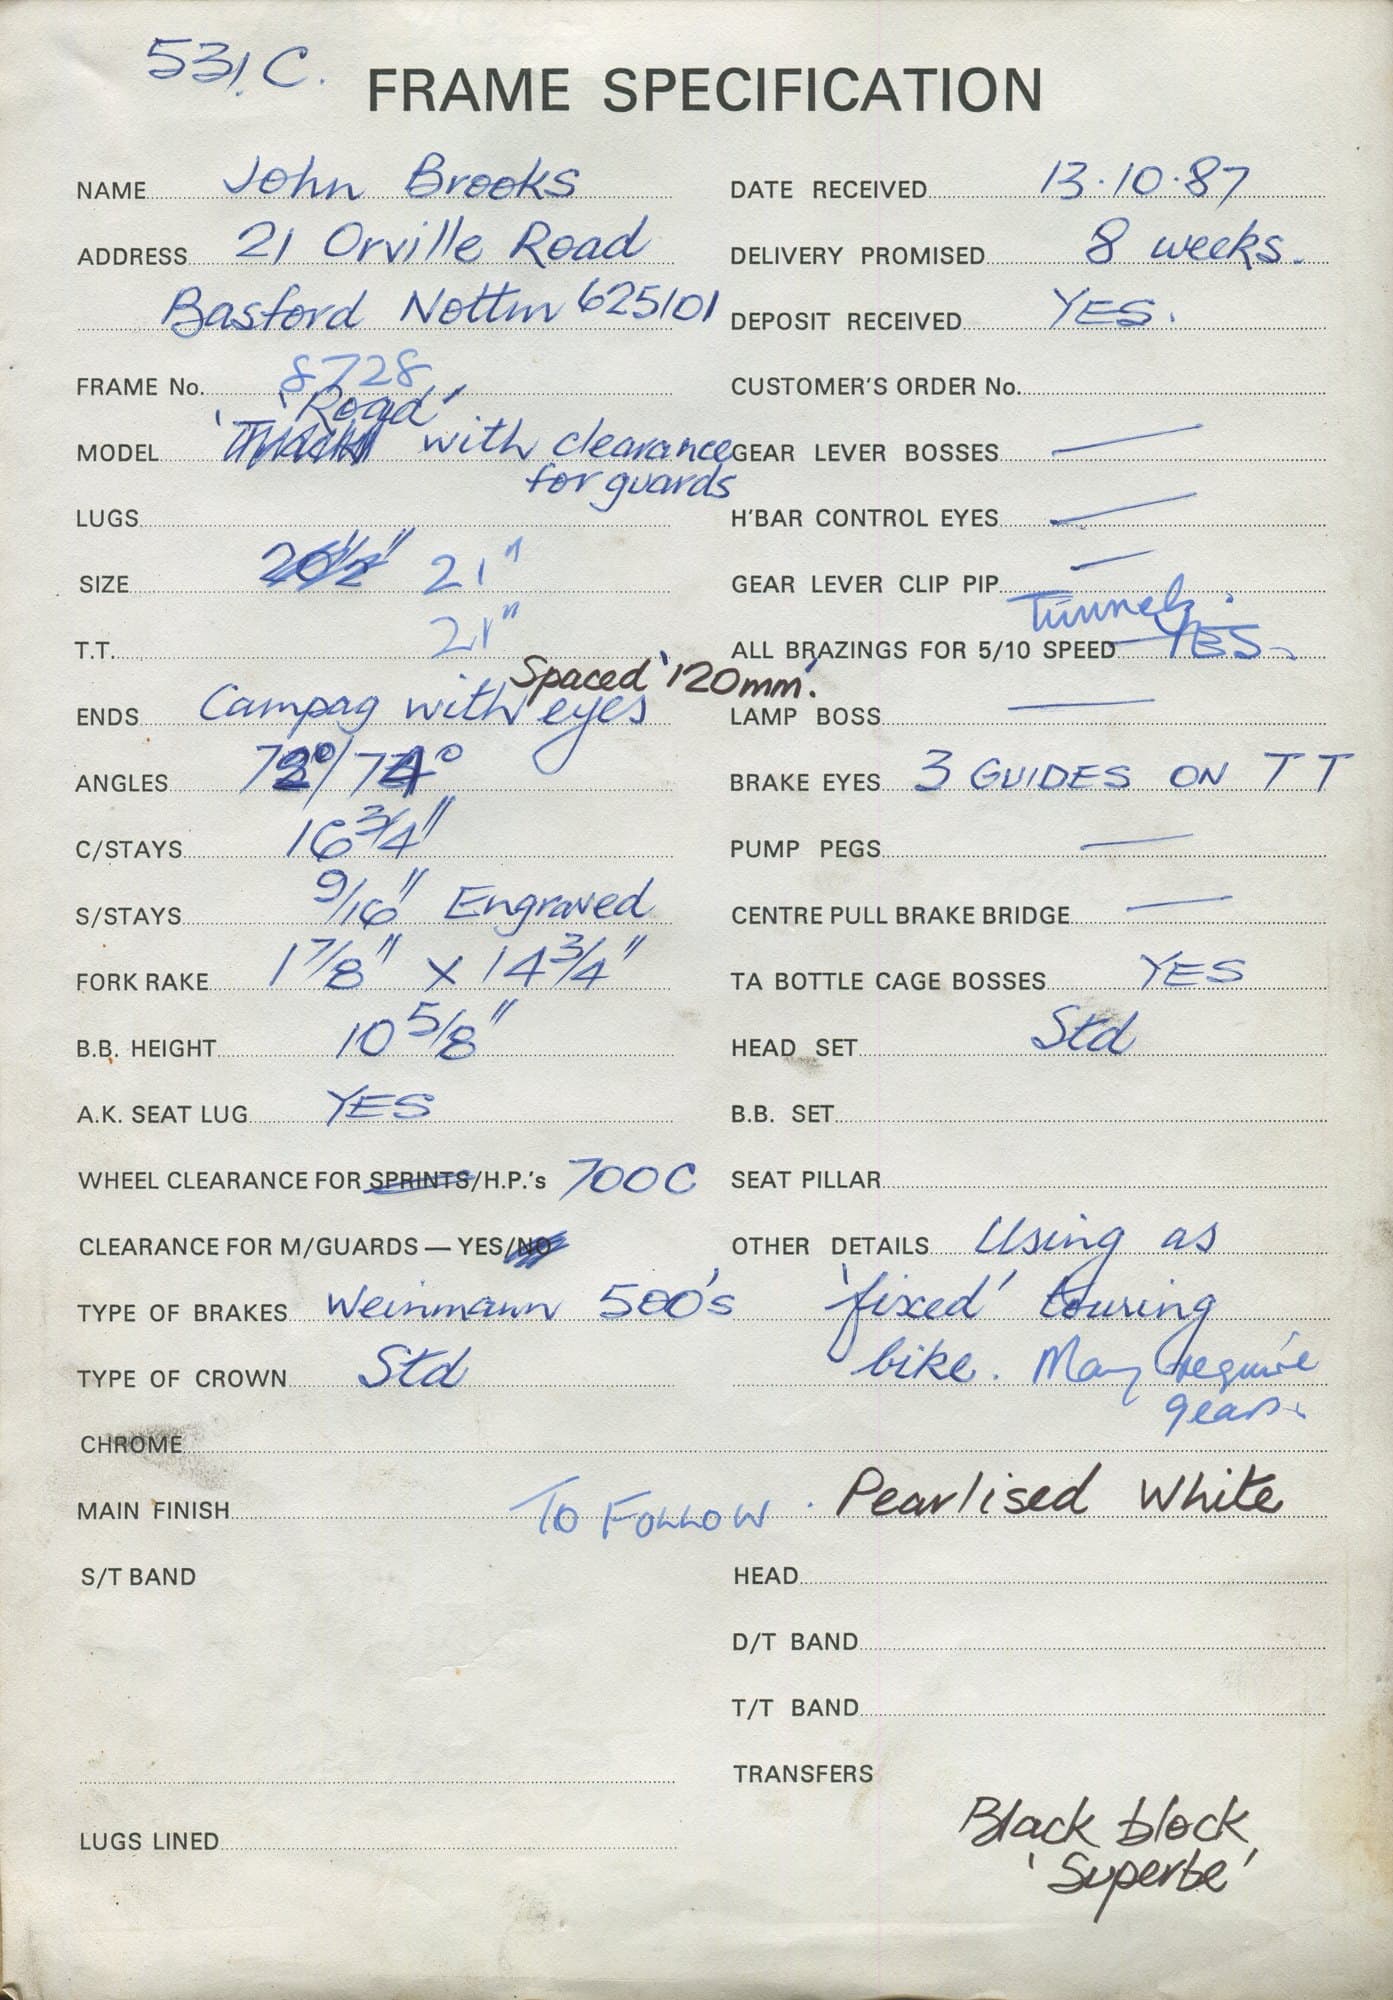 531C.
FRAME SPECIFICATION
NAME John Brooks
DATE RECEIVED 13.10.87
ADDRESS 21 Orville Road
DELIVERY PROMISED 8 weeks.
Basford Nottm 625101
DEPOSIT RECEIVED YES.
FRAME No. 8728
CUSTOMER'S ORDER No.
'Road'
MODEL with clearance
for guards
GEAR LEVER BOSSES —
LUGS
H'BAR CONTROL EYES —
SIZE 20½" 21"
GEAR LEVER CLIP PIP —
Tunnels.
T.T. 21"
ALL BRAZINGS FOR 5/10 SPEED — YES.
Spaced '120mm'.
ENDS Campag with eyes
LAMP BOSS —
ANGLES 72°/74°
BRAKE EYES 3 GUIDES ON TT
C/STAYS 16 3/4"
PUMP PEGS —
S/STAYS 9/16" Engraved
CENTRE PULL BRAKE BRIDGE —
FORK RAKE 1 7/8" x 14 3/4"
TA BOTTLE CAGE BOSSES YES
B.B. HEIGHT 10 5/8"
HEAD SET Std
A.K. SEAT LUG YES
B.B. SET
WHEEL CLEARANCE FOR SPRINTS/H.P.'s 700C
SEAT PILLAR
CLEARANCE FOR M/GUARDS — YES/NO
OTHER DETAILS Using as
TYPE OF BRAKES Weinmann 500's
'fixed' touring
TYPE OF CROWN Std
bike. May require
gears.
CHROME
MAIN FINISH To Follow. Pearlised White
S/T BAND
HEAD
D/T BAND
T/T BAND
TRANSFERS
Black block
'Superbe'
LUGS LINED